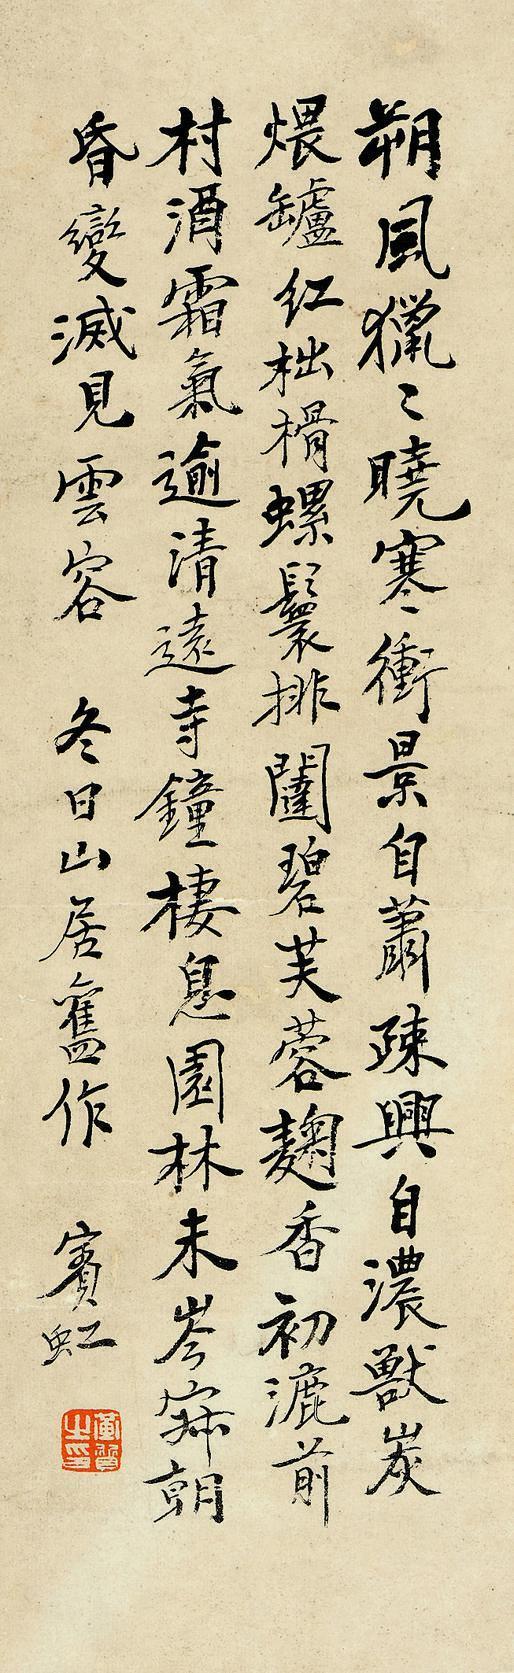 朔風獵〻曉寒衝景自蕭疎興自濃獸炭
煨罏紅柮榾螺鬟排闥碧芙蓉麹香初漉前
村酒霜氣逾清遠寺鐘棲息園林未岑寂朝
昏變滅見雲容　冬日山居舊作
賓虹
黃質之印